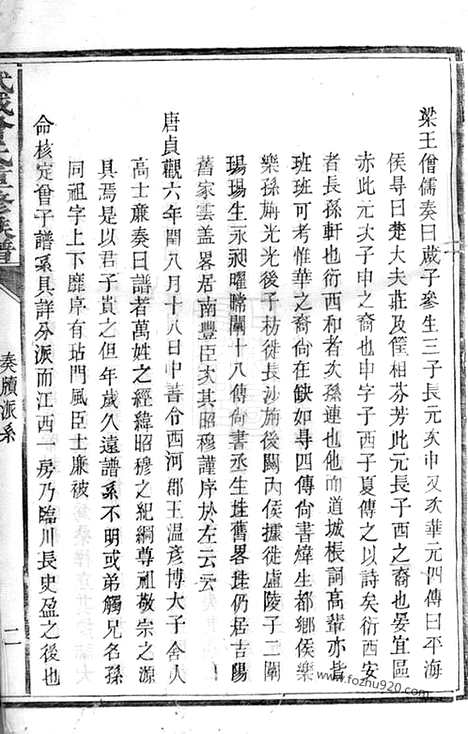 梁王僧儒奏曰歳子參生三子長元次申又次華元四傳曰平海
侯尋曰楚大夫莊及筐相芬芳此元長子西之裔也晏宜區
赤此元次子申之裔也申字子西子夏傳之以詩矣衍西安
者長孫軒也衍西和者次孫連也他道城根詞高輩亦皆
班班可考惟華之裔尙在缺如尋四傳尙書煒生都鄉侯樂
樂孫旃光光後子枋徙長沙施後關內侯據徙盧陵子二闡
瑒瑒生永昶曜嘴闡十八傳尙書丞生珪舊畧珪仍居吉陽
舊家雲盖畧居南豐臣次其昭穆謹序於左云云
唐貞觀六年閏八月十八日中書令西河郡王温彥博大子舍人
高士亷奏曰譜者萬姓之經緯昭穆之紀綱尊祖敬宗之源
具焉是以君子貴之但年歲久遠譜系不明或弟觸兄名孫
同祖字上下靡序有玷門風臣士亷被
命核定曾子譜系具詳分派而江西一房乃臨川長史盈之後也
武城曾氏重修族譜
奏牘派系
二
www.fozhu920.com